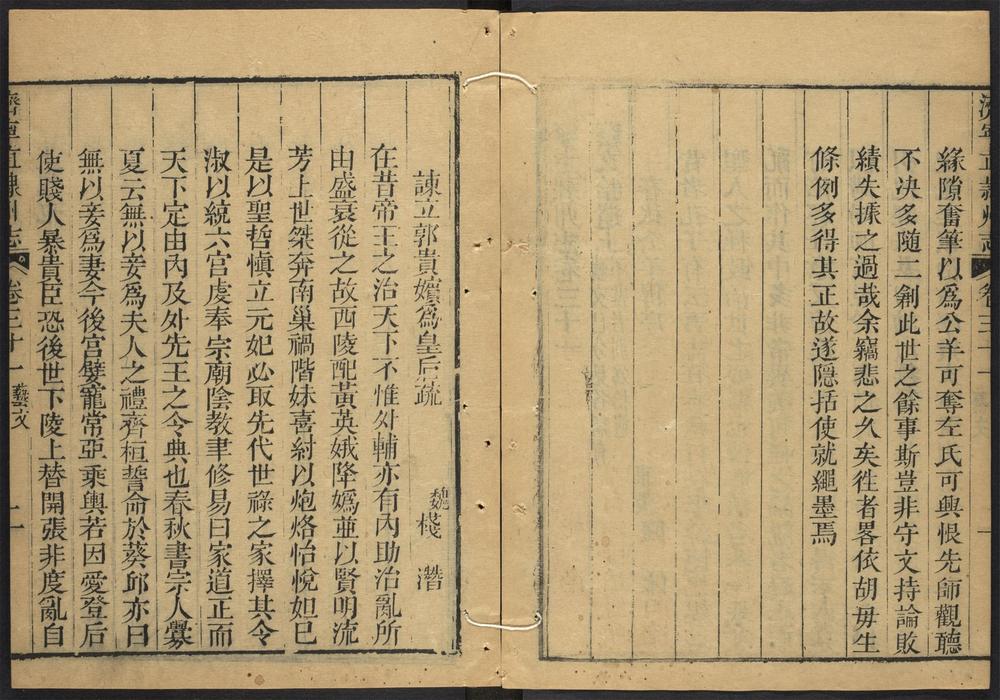 濟寧直隸州志 卷三十一
緣隙奮筆以為公羊可奪左氏可興恨先師觀聽
不决多隨二創此世之餘事斯豈非守文持論敗
績失據之過哉余竊悲之久矣徃者畧依胡毋生
條例多得其正故遂隱括使就繩墨焉
諫立郭貴嬪為皇后疏 魏棧 潛
在昔帝王之治天下不惟外輔亦有內助治亂所
由盛衰從之故西陵配黃英娥降嬀並以賢明流
芳上世桀奔南巢禍階妹喜紂以炮烙怡悅妲已
是以聖哲慎立元妃必取先代世祿之家擇其令
淑以統六宮虔奉宗廟陰教聿修易曰家道正而
天下定由內及外先王之令典也春秋書宗人釁
夏云無以妾為夫人之禮齊桓誓命於葵邱亦曰
無以妾為妻今後宮嬖寵常亞乘輿若因愛登后
使賤人暴貴臣恐後世下陵上替開張非度亂自
濟寧直隸州志 卷三十一 藝文 二